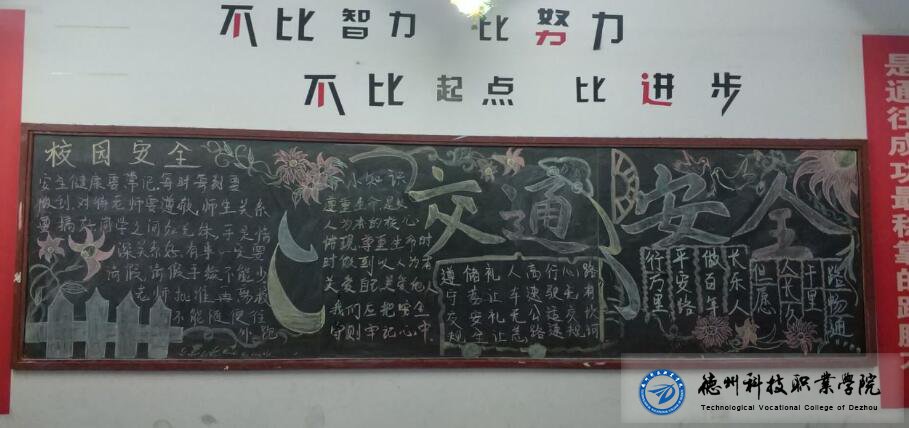 不比智力 比努力
不比起点 比进步
是通往成功最稳靠的路
校园安全
安全健康要常记,每时每刻要
做到.对待老师要尊敬,师生关系
要搞好.同学之间如兄妹,手足情
深关系好.有事一定要
请假,请假手续不能少
老师批准再离校
不能随便往
外跑
小知识
尊重生命是以
人为本的核心
体现,尊重生命时
时做到以人为本
关爱自己关爱他人
我们应把安全
守则牢记心中
交通安全
路有坎坷
心无交规
行驶远违
高速公路
人车无恙
礼让礼让
储蓄安全
遵守交规
路畅通
千里
人长久
但愿
长乐人
做百年
平安路
行万里
德州科技职业学院
Technological Vocational College of Dezhou